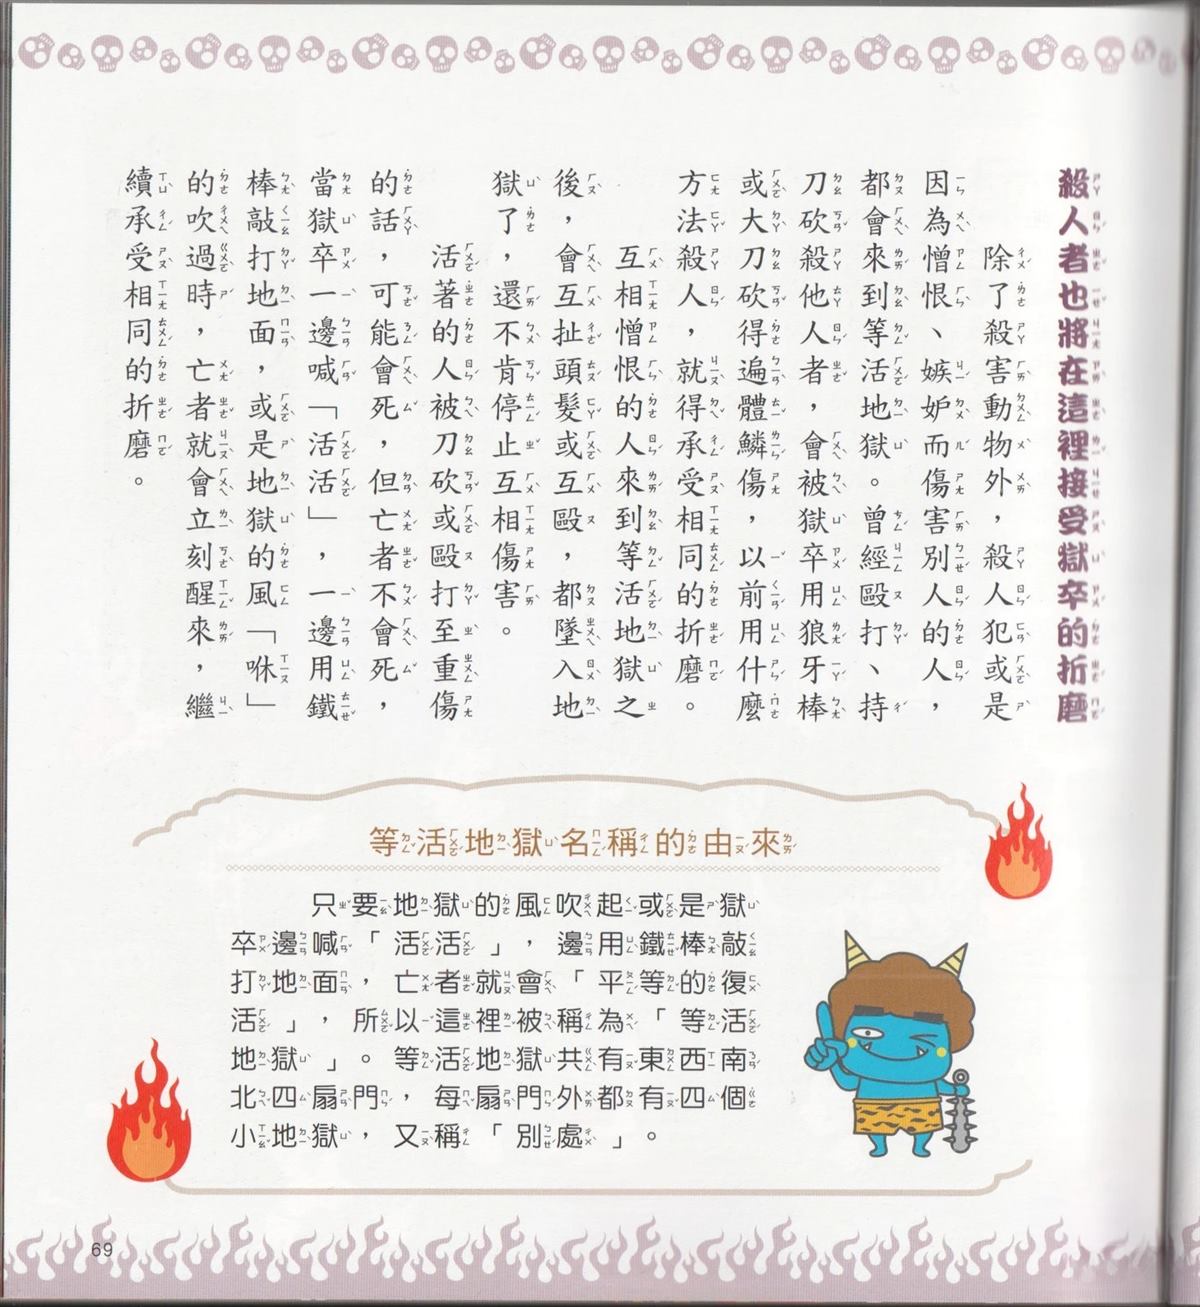 殺人者也將在這裡接受獄卒的折磨
除了殺害動物外，殺人犯或是
因為憎恨、嫉妒而傷害別人的人，
都會來到等活地獄。曾經毆打、持
刀砍殺他人者，會被獄卒用狼牙棒
或大刀砍得遍體鱗傷，以前用什麼
方法殺人，就得承受相同的折磨。
互相憎恨的人來到等活地獄之
後，會互扯頭髮或互毆，都墜入地
獄了，還不肯停止互相傷害。
活著的人被刀砍或毆打至重傷
的話，可能會死，但亡者不會死，
當獄卒一邊喊「活活」，一邊用鐵
棒敲打地面，或是地獄的風「咻」
的吹過時，亡者就會立刻醒來，繼
續承受相同的折磨。
等活地獄名稱的由來
只要地獄的風吹起或是獄
卒邊喊「活活」，邊用鐵棒敲
打地面，亡者就會「平等的復
活」，所以這裡被稱為「等活
地獄」。等活地獄共有東西南
北四扇門，每扇門外都有四個
小地獄，又稱「別處」。
69